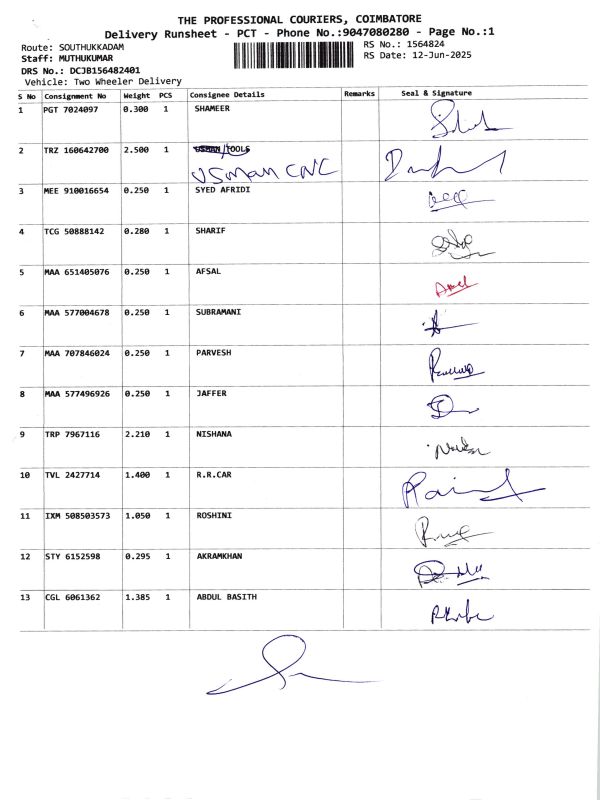 THE PROFESSIONAL COURIERS, COIMBATORE
Delivery Runsheet - PCT - Phone No.:9047080280 - Page No.:1
Route: SOUTHUKKADAM RS No.: 1564824
Staff: MUTHUKUMAR RS Date: 12-Jun-2025
DRS No.: DCJB156482401
Vehicle: Two Wheeler Delivery
S No Consignment No Weight PCS Consignee Details Remarks Seal & Signature
1 PGT 7024097 0.300 1 SHAMEER
2 TRZ 160642700 2.500 1 USMAN TOOLS
USMAN CNC
3 MEE 910016654 0.250 1 SYED AFRIDI
4 TCG 50888142 0.280 1 SHARIF
5 MAA 651405076 0.250 1 AFSAL
6 MAA 577004678 0.250 1 SUBRAMANI
7 MAA 707846024 0.250 1 PARVESH
8 MAA 577496926 0.250 1 JAFFER
9 TRP 7967116 2.210 1 NISHANA
10 TVL 2427714 1.400 1 R.R.CAR
11 IXM 508503573 1.050 1 ROSHINI
12 STY 6152598 0.295 1 AKRAMKHAN
13 CGL 6061362 1.385 1 ABDUL BASITH